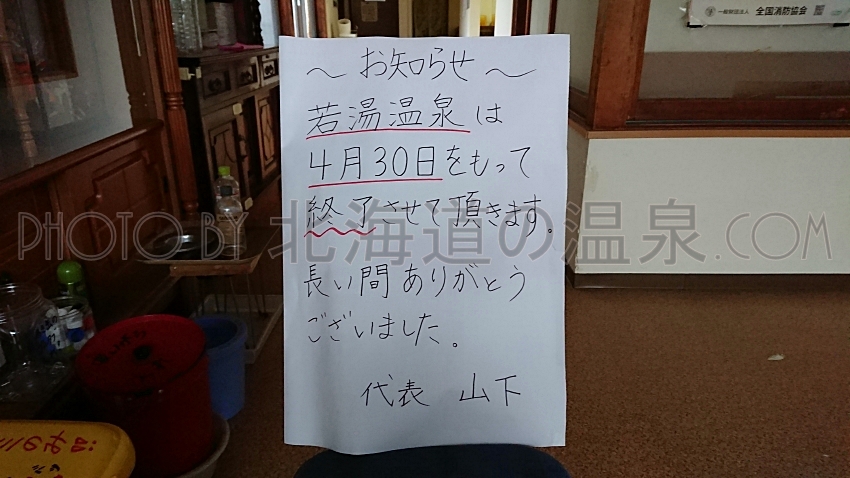 一般財団法人 全国消防協会
～ お知らせ ～
若湯温泉は
4月30日をもって
終了させて頂きます。
長い間ありがとう
ございました。
代表 山下
PHOTO BY 北海道の温泉.COM